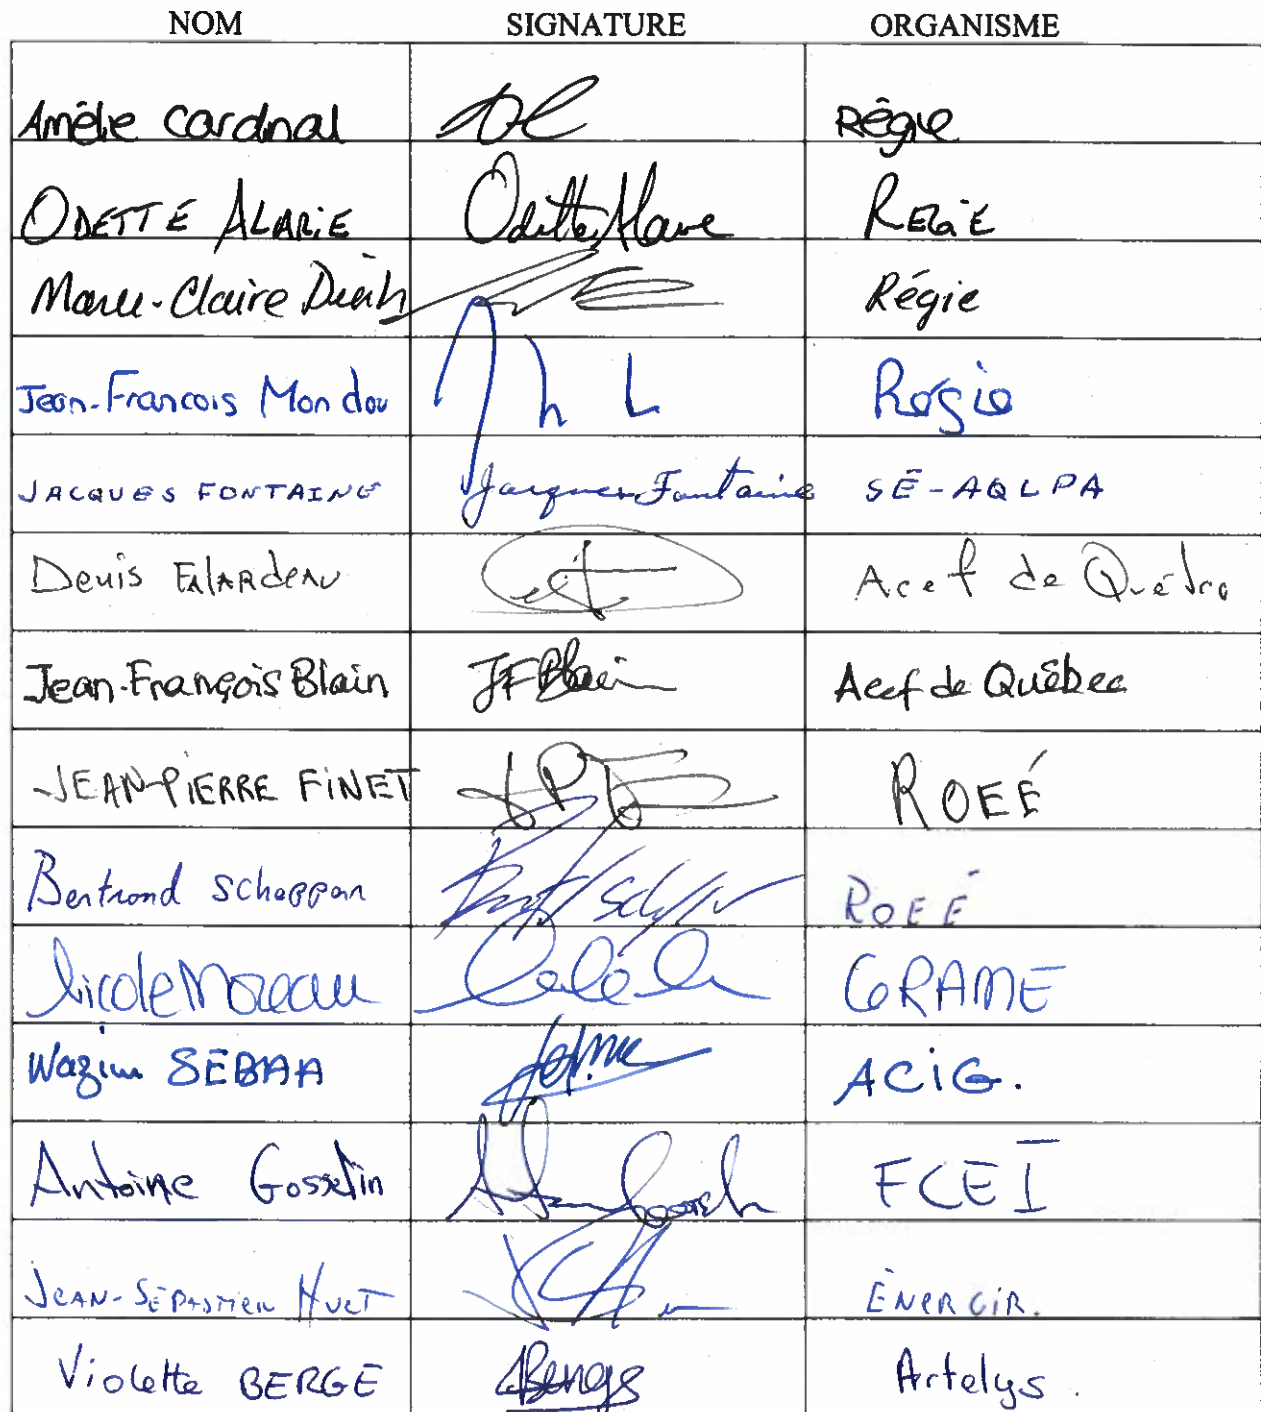 NOM SIGNATURE ORGANISME
Amélie Cardinal Régie
ODETTE ALARIE Odette Alarie RÉGIE
Marie-Claire Régie
Jean-Francois Mondou Régie
JACQUES FONTAINE Jacques Fontaine SÉ-AQLPA
Denis FALARdeAU Acef de Québec
Jean-François Blain JF Blain Acef de Québec
JEAN-PIERRE FINET JPF ROEÉ
Bertrand Scheppan ROEÉ
Nicole Moreau GRAME
Wazim SEBAA ACIG.
Antoine Gosselin FCEI
JEAN-SÉBASTIEN HUET ÉNERGIR.
Violette BERGE Artelys.